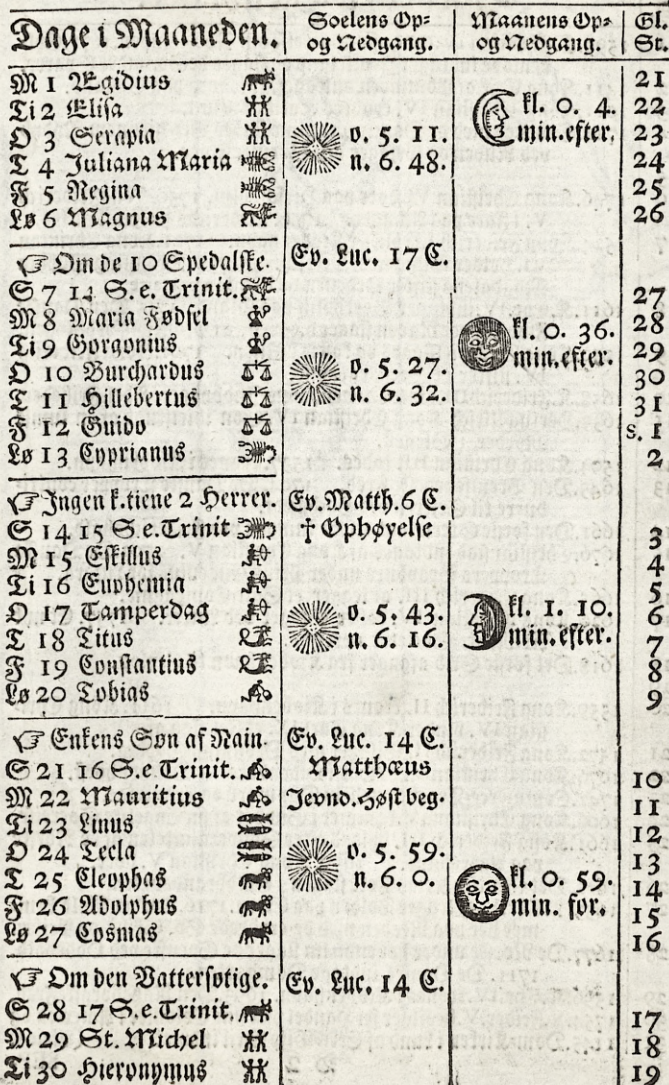 Dage i Maaneden. Soelens Op= Maanens Op= Gl.
og Nedgang. og Nedgang. St.
M 1 Ægidius 21
Ti 2 Elisa kl. 0. 4. 22
O 3 Serapia o. 5. 11. min. efter. 23
T 4 Juliana Maria n. 6. 48. 24
F 5 Regina 25
Lø 6 Magnus 26
☞ Om de 10 Spedalske. Ev. Luc. 17 C.
S 7 14 S. e. Trinit. 27
M 8 Maria Fødsel kl. 0. 36. 28
Ti 9 Gorgonius min. efter. 29
O 10 Burchardus o. 5. 27. 30
T 11 Hillebertus n. 6. 32. 31
F 12 Guido S. 1
Lø 13 Cyprianus 2
☞ Ingen k. tiene 2 Herrer. Ev. Matth. 6 C.
S 14 15 S. e. Trinit † Ophøyelse 3
M 15 Eskillus 4
Ti 16 Euphemia 5
O 17 Tamperdag o. 5. 43. kl. 1. 10. 6
T 18 Titus n. 6. 16. min. efter. 7
F 19 Constantius 8
Lø 20 Tobias 9
☞ Enkens Søn af Nain. Ev. Luc. 14 C.
S 21 16 S. e. Trinit. Matthæus 10
M 22 Mauritius Jevnd. Høst beg. 11
Ti 23 Linus 12
O 24 Tecla o. 5. 59. 13
T 25 Cleophas n. 6. 0. kl. 0. 59. 14
F 26 Adolphus min. for. 15
Lø 27 Cosmas 16
☞ Om den Vattersotige. Ev. Luc. 14 C.
S 28 17 S. e. Trinit. 17
M 29 St. Michel 18
Ti 30 Hieronymus 19